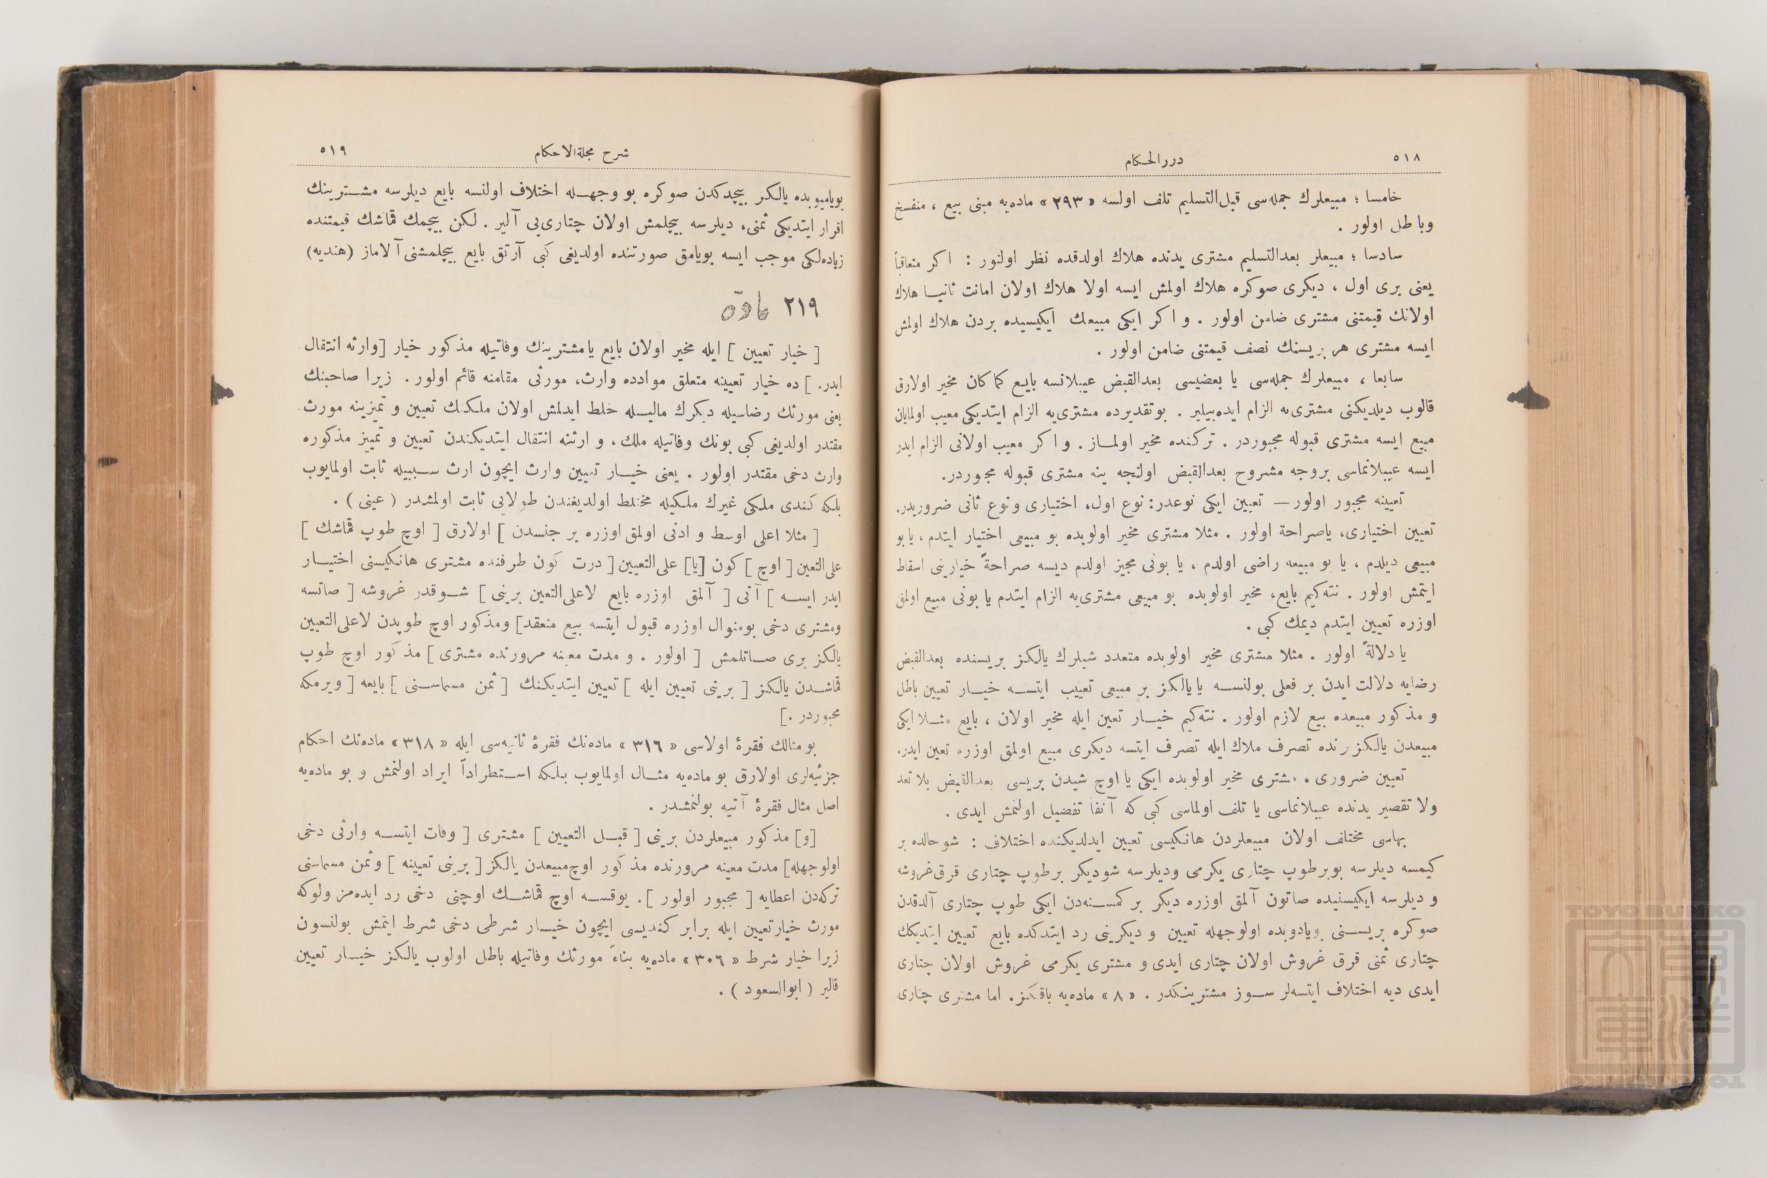 ٥١٨
دررالحكام
خامسا ؛ مبيعلرك جمله‌سی قبل‌التسليم تلف اولسه « ٢٩٣ » ماده‌يه مبنی بيع ، منفسخ
وباطل اولور .
سادسا ؛ مبيعلر بعدالتسليم مشتری يدنده هلاك اولدقده نظر اولنور : اكر متعاقباً
يعنی بری اول ، ديكری صوكره هلاك اولمش ايسه اولا هلاك اولان امانت ثانيا هلاك
اولانك قيمتنی مشتری ضامن اولور . و اكر ايكی مبيعك ايكيسيده بردن هلاك اولمش
ايسه مشتری هر بريسنك نصف قيمتنی ضامن اولور .
سابعا ، مبيعلرك جمله‌سی يا بعضيسی بعدالقبض عيبلانسه بايع كماكان مخير اولارق
قالوب ديلديكنی مشتری‌يه الزام ايده‌بيلير . بوتقديرده مشتری‌يه الزام ايتديكی معيب اولمايان
مبيع ايسه مشتری قبوله مجبوردر . تركنده مخير اولماز . و اكر معيب اولانی الزام ايدر
ايسه عيبلانماسی بروجه مشروح بعدالقبض اولنجه ينه مشتری قبوله مجبوردر.
تعيينه مجبور اولور — تعيين ايكی نوعدر: نوع اول، اختياری ونوع ثانی ضروريدر.
تعيين اختياری، ياصراحة اولور . مثلا مشتری مخير اولوبده بو مبيعی اختيار ايتدم ، يابو
مبيعی ديلدم ، يا بو مبيعه راضی اولدم ، يا بونی مجيز اولدم ديسه صراحةً خيارينی اسقاط
ايتمش اولور . نته‌كيم بايع، مخير اولوبده بو مبيعی مشتری‌يه الزام ايتدم يا بونی مبيع اولمق
اوزره تعيين ايتدم ديمك كبی .
يا دلالةً اولور . مثلا مشتری مخير اولوبده متعدد شيلرك يالكز بريسنده بعدالقبض
رضايه دلالت ايدن بر فعلی بولنسه يا يالكز بر مبيعی تعييب ايتسه خيار تعيين باطل
و مذكور مبيعده بيع لازم اولور . نته‌كيم خيار تعيين ايله مخير اولان ، بايع مثلا ايكی
مبيعدن يالكز برنده تصرف ملاك ايله تصرف ايتسه ديكری مبيع اولمق اوزره تعين ايدر.
تعيين ضروری . مشتری مخير اولوبده ايكی يا اوچ شيدن بريسی بعدالقبض بلا تعد
ولا تقصير يدنده عيبلانماسی يا تلف اولماسی كبی كه آنفا تفصيل اولنمش ايدی .
بهاسی مختلف اولان مبيعلردن هانكيسی تعيين ايدلديكنده اختلاف : شو حالده بر
كيمسه ديلرسه بوبرطوپ چتاری يكرمی وديلرسه شوديكر برطوپ چتاری قرق‌غروشه
و ديلرسه ايكيسنيده صاتون آلمق اوزره ديكر بر كمسنه‌دن ايكی طوپ چتاری آلدقدن
صوكره بريسنی بويادوبده اولوجهله تعيين و ديكرينی رد ايتدكده بايع تعيين ايتديكك
چتاری ثمنی قرق غروش اولان چتاری ايدی و مشتری يكرمی غروش اولان چتاری
ايدی ديه اختلاف ايتسه‌لر سوز مشترينكدر . « ٨ » ماده‌يه باقكز. اما مشتری چتاری
٥١٩
شرح مجلةالاحكام
بوياميوبده يالكز بيچدكدن صوكره بو وجهله اختلاف اولنسه بايع ديلرسه مشترينك
اقرار ايتديكی ثمنی، ديلرسه بيچلمش اولان چتاری‌يی آلير . لكن بيچمك قماشك قيمتنده
زياده‌لكی موجب ايسه بويامق صورتنده اولديغی كبی آرتق بايع بيچلمشنی آلاماز (هنديه)
٢١٩ مادّه
[ خيار تعيين ] ايله مخير اولان بايع يامشترينك وفاتيله مذكور خيار [وارثه انتقال
ايدر. ] ده خيار تعيينه متعلق موادده وارث، مورثی مقامنه قائم اولور . زيرا صاحبنك
يعنی مورثك رضاسيله ديكرك ماليله خلط ايدلمش اولان ملكنك تعيين و تميزينه مورث
مقتدر اولديغی كبی بونك وفاتيله ملك، و ارثنه انتقال ايتديكندن تعيين و تمييز مذكوره
وارث دخی مقتدر اولور . يعنی خيار تعيين وارث ايچون ارث سببيله ثابت اولمايوب
بلكه كندی ملكی غيرك ملكيله مختلط اولديغندن طولايی ثابت اولمشدر ( عينی ) .
[ مثلا اعلی اوسط و ادنی اولمق‌اوزره بر جنسدن ] اولارق [ اوچ طوپ قماشك ]
علی‌التعيين [ اوچ ] كون [يا] علی‌التعيين [ درت كون طرفنده مشتری هانكيسنی اختيار
ايدر ايسه ] آنی [ آلمق اوزره بايع لاعلی‌التعين برينی ] شوقدر غروشه [ صاتسه
ومشتری دخی بومنوال اوزره قبول ايتسه بيع منعقد] ومذكور اوچ طوپدن لاعلی‌التعيين
يالكز بری صاتلمش [ اولور . و مدت معينه مرورنده مشتری ] مذكور اوچ طوپ
قماشدن يالكز [ برينی تعيين ايله ] تعيين ايتديكنك [ ثمن مسماسنی ] بايعه [ ويرمكه
مجبوردر .]
بو مثالك فقرۀ اولاسی « ٣١٦ » ماده‌نك فقرۀ ثانيه‌سی ايله « ٣١٨ » ماده‌نك احكام
جزئيه‌لری اولارق بو ماده‌يه مثال اولمايوب بلكه استطراداً ايراد اولنمش و بو ماده‌يه
اصل مثال فقرۀ آتيه بولنمشدر .
[و] مذكور مبيعلردن برينی [ قبل التعيين ] مشتری [ وفات ايتسه وارثی دخی
اولوجهله] مدت معينه مرورنده مذكور اوچ‌مبيعدن يالكز[ برينی تعيينه ] وثمن مسماسنی
تركه‌دن اعطايه [ مجبور اولور ]. يوقسه اوچ قماشك اوچنی دخی رد ايده‌مز ولوكه
مورث خيارتعيين ايله برابر كنديسی ايچون خيار شرطی دخی شرط ايتمش بولنسون
زيرا خيار شرط « ٣٠٦ » ماده‌يه بناءً مورثك وفاتيله باطل اولوب يالكز خيار تعيين
قالير ( ابوالسعود ) .
TOYO BUNKO